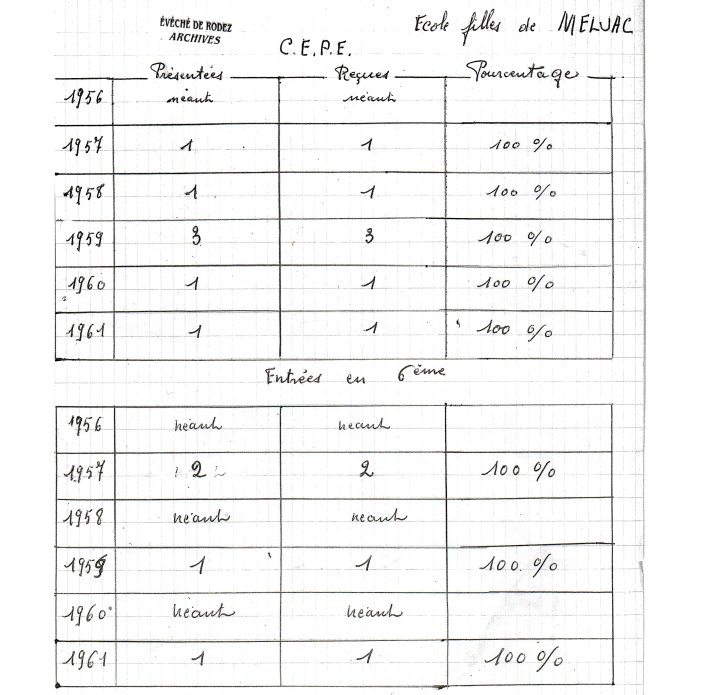 Ecole filles de MELJAC
ÉVÊCHÉ DE RODEZ
ARCHIVES
C.E.P.E.
Présentées Reçues Pourcentage
1956 néant néant
1957 1 1 100 %
1958 1 1 100 %
1959 3 3 100 %
1960 1 1 100 %
1961 1 1 100 %
Entrées en 6ème
1956 néant néant
1957 2 2 100 %
1958 néant néant
1959 1 1 100 %
1960 néant néant
1961 1 1 100 %